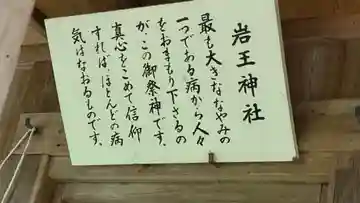 岩王神社
最も大きななやみの
一つである病から人々
をおまもり下さるの
が、この御祭神です。
真心をこめて信仰
すれば、ほとんどの病
気はなおるものです。